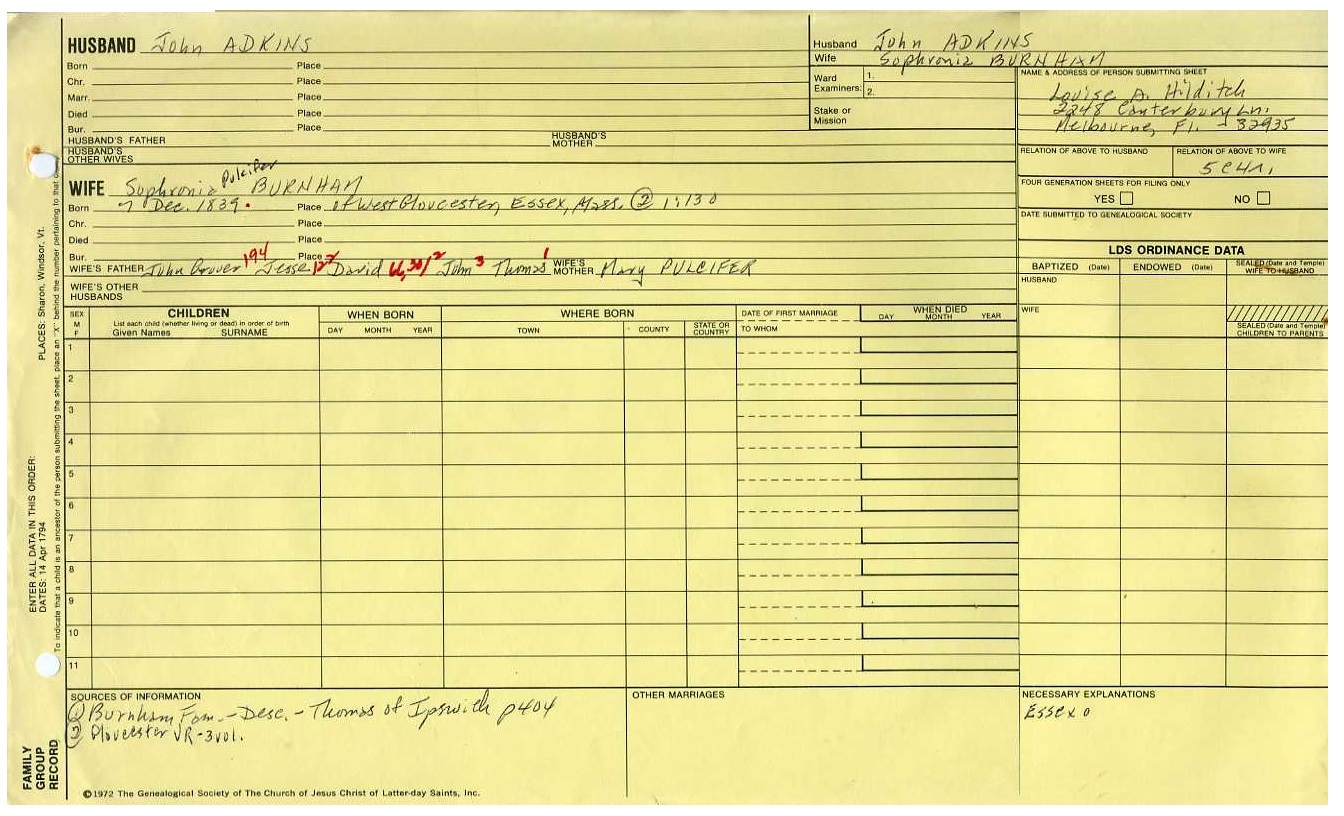 HUSBAND John ADKINS
Born Place
Chr. Place
Marr. Place
Died Place
Bur. Place
HUSBAND'S FATHER HUSBAND'S MOTHER
HUSBAND'S OTHER WIVES
Husband John ADKINS
Wife Sophronia BURNHAM
Ward Examiners: 1. 2.
Stake or Mission
NAME & ADDRESS OF PERSON SUBMITTING SHEET
Louise A. Hilditch
2248 Canterbury Ln.
Melbourne, Fl. - 32935
RELATION OF ABOVE TO HUSBAND RELATION OF ABOVE TO WIFE
5C4R,
FOUR GENERATION SHEETS FOR FILING ONLY
YES NO
DATE SUBMITTED TO GENEALOGICAL SOCIETY
WIFE Sophronia Pulcifer BURNHAM
Born 7 Dec. 1839. Place of West Gloucester, Essex, Mass. ② 1:130
Chr. Place
Died Place
Bur. Place
WIFE'S FATHER John Grover 194 Jesse 122 David John 3 Thomas 1 WIFE'S MOTHER Mary PULCIFER
WIFE'S OTHER HUSBANDS
LDS ORDINANCE DATA
BAPTIZED (Date) ENDOWED (Date) SEALED (Date and Temple) WIFE TO HUSBAND
HUSBAND
WIFE
SEALED (Date and Temple) CHILDREN TO PARENTS
SEX M F
CHILDREN
List each child (whether living or dead) in order of birth
Given Names SURNAME
WHEN BORN
DAY MONTH YEAR
WHERE BORN
TOWN COUNTY STATE OR COUNTRY
DATE OF FIRST MARRIAGE
TO WHOM
WHEN DIED
DAY MONTH YEAR
1
2
3
4
5
6
7
8
9
10
11
SOURCES OF INFORMATION
① Burnham Fam. - Desc. - Thomas of Ipswich p404
② Gloucester VR - 3vol.
OTHER MARRIAGES
NECESSARY EXPLANATIONS
Essex 0
©1972 The Genealogical Society of The Church of Jesus Christ of Latter-day Saints, Inc.
FAMILY GROUP RECORD
ENTER ALL DATA IN THIS ORDER:
DATES: 14 Apr 1794
PLACES: Sharon, Windsor, Vt.
To indicate that a child is an ancestor of the person submitting the sheet, place an "X" behind the number pertaining to that